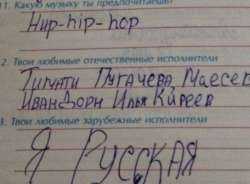 11. Какую музыку ты предпочитаешь?
Hup-hip-hop
2. Твои любимые отечественные исполнители
Тимати Пугачева, Маесек
Иван Дорн Илья Киреев
3. Твои любимые зарубежные исполнители
Я Русская